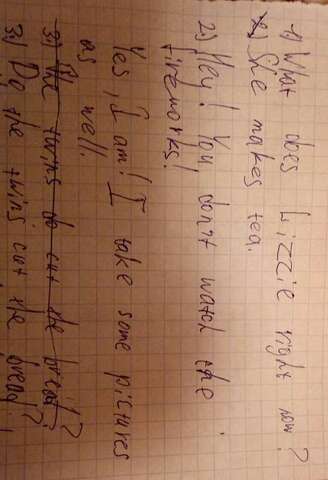 1) What does Lizzie right now?
2) She makes tea.
2) Hey! You don't watch the
fireworks!
Yes, I am! I take some pictures
as well.
3) The twins do cut the bread?
3) Do the twins cut the bread?